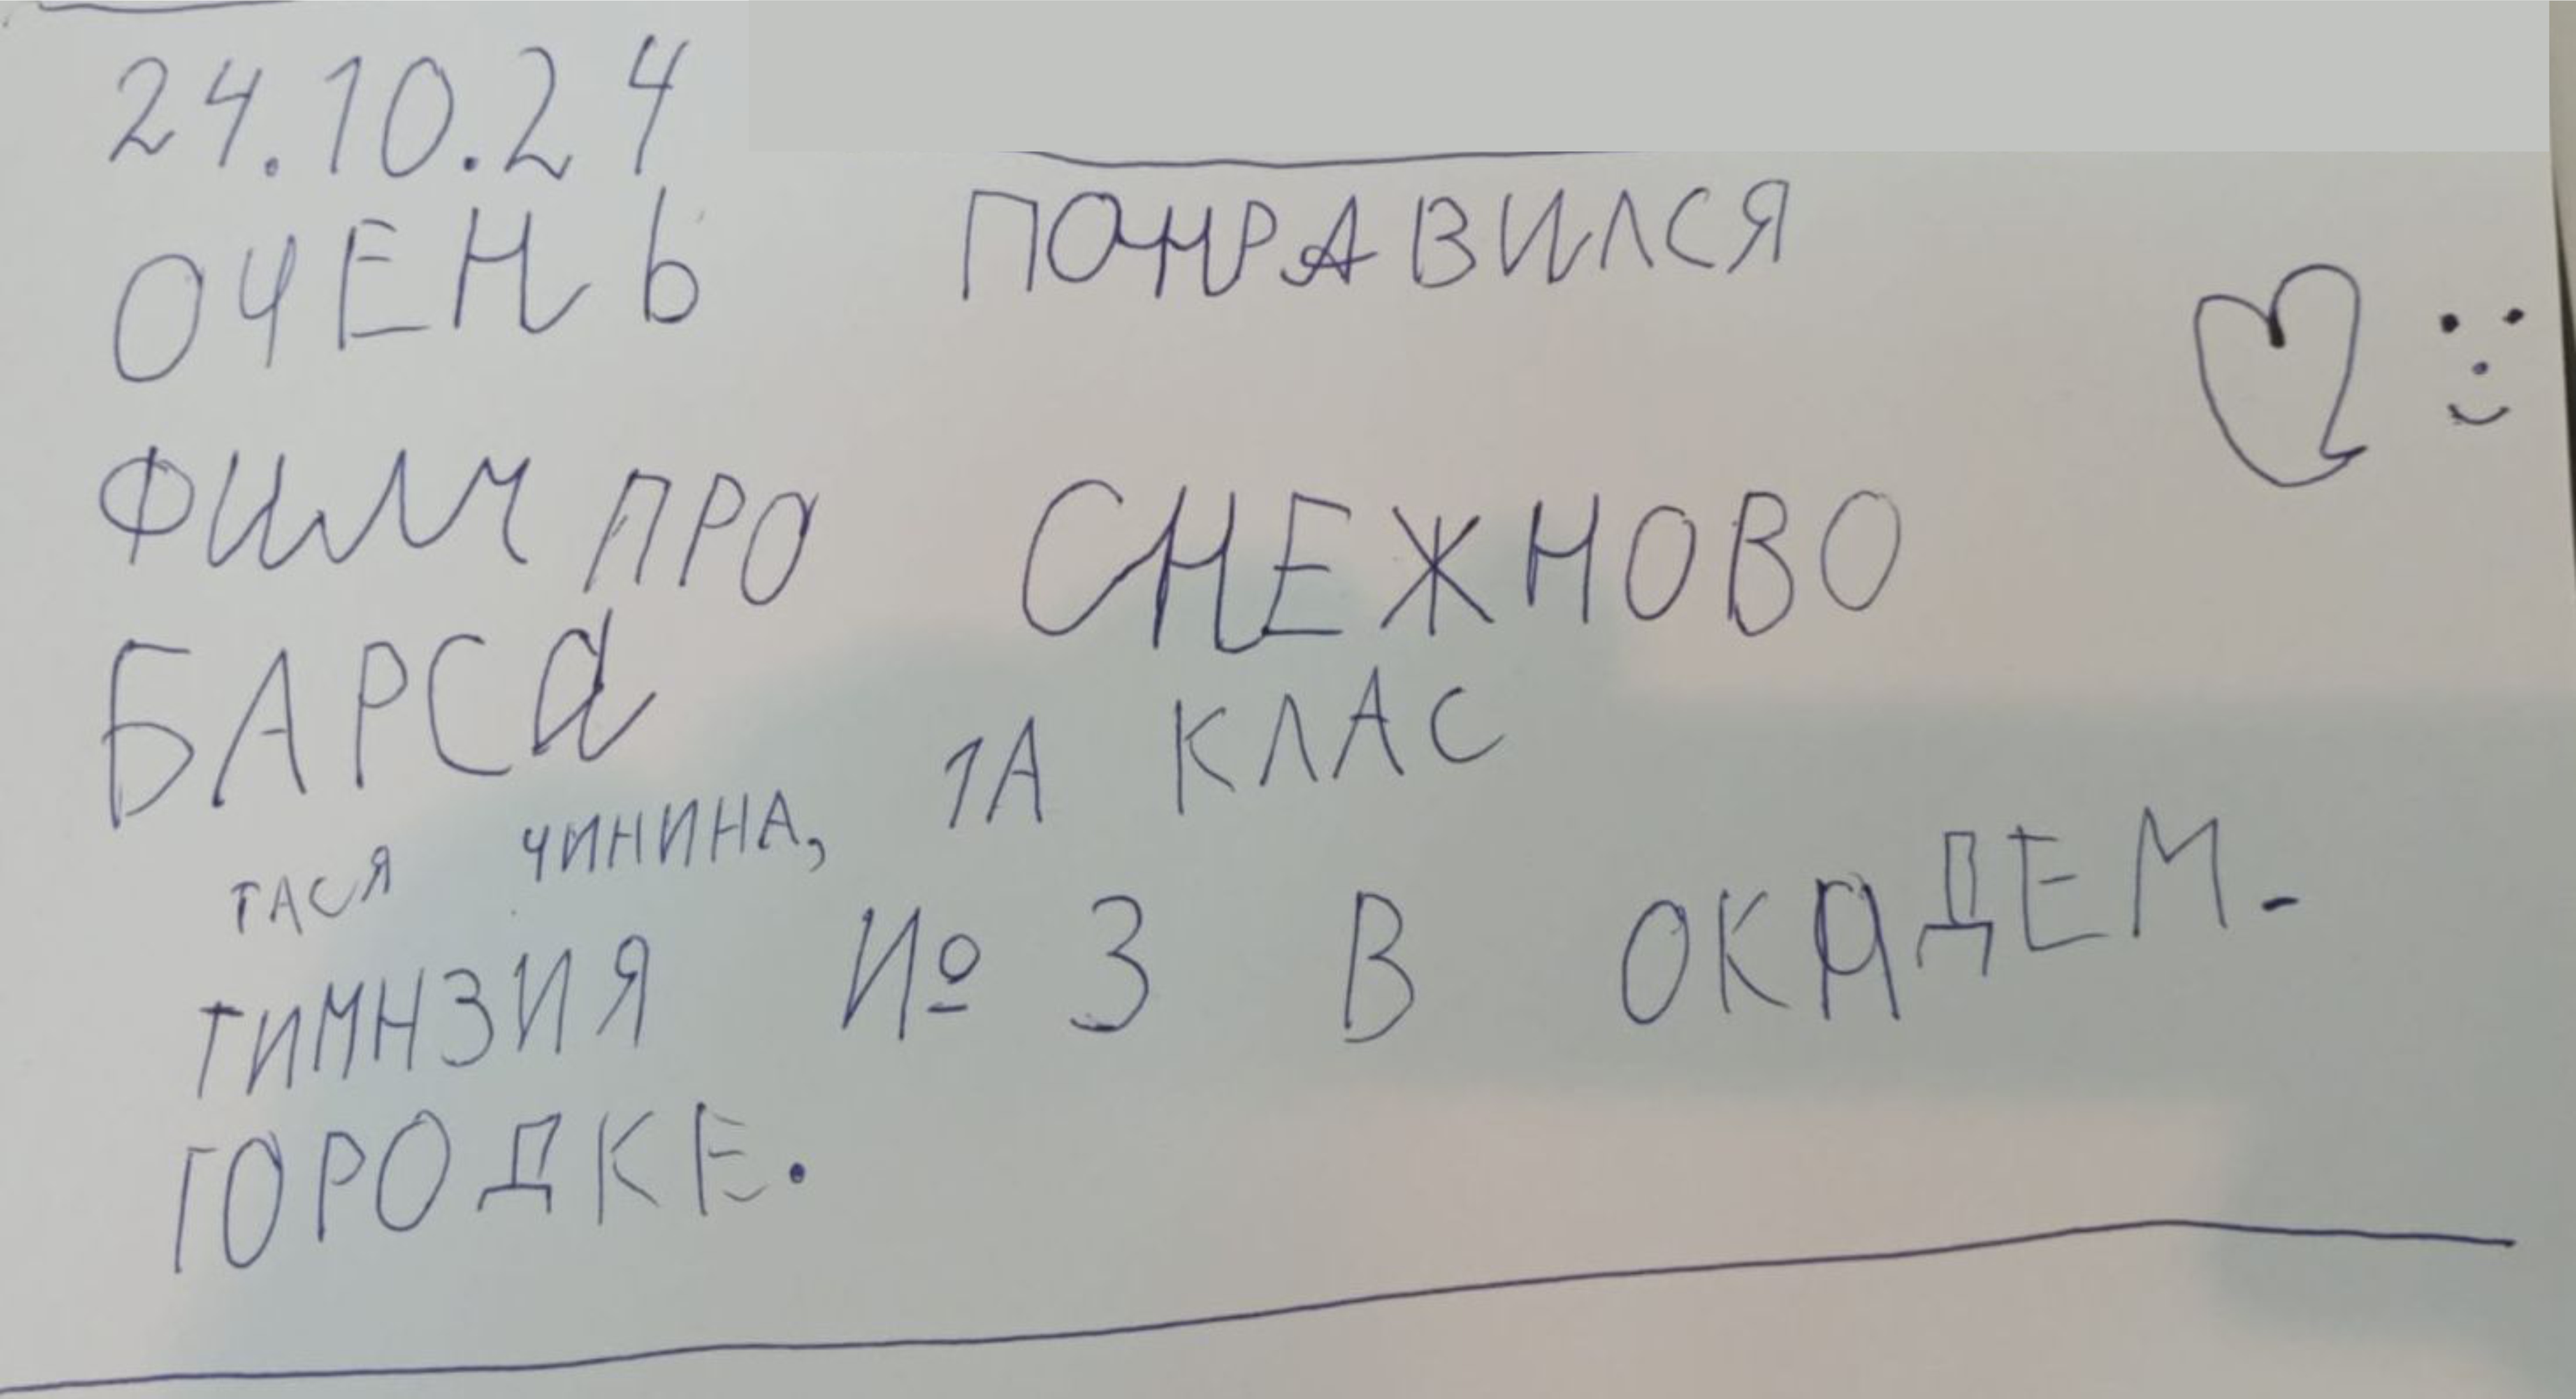 24.10.24
ОЧЕНЬ ПОНРАВИЛСЯ
ФИЛМ ПРО СНЕЖНОВО
БАРСА
ТАСЯ ЧИНИНА, 1А КЛАС
ГИМНЗИЯ № 3 В ОКАДЕМ-
ГОРОДКЕ.